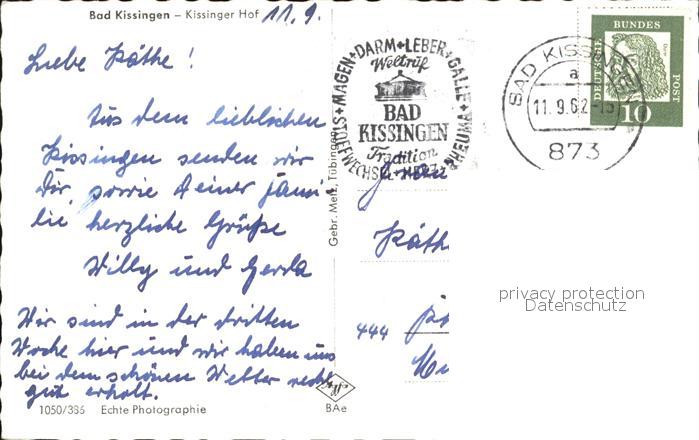 Bad Kissingen – Kissinger Hof
11.9.
Liebe Käthe!
Aus dem lieblichen
Kissingen senden wir
Dir, sowie Deiner Fami-
lie herzliche Grüße
Willy und Gerda
Wir sind in der dritten
Woche hier und wir haben uns
bei dem schönen Wetter recht
gut erholt.
1050/336 Echte Photographie
Gebr. Metz, Tübingen
BAe
STOFFWECHSEL+HERZ+RHEUMA+GALLE+LEBER+DARM+MAGEN
Weltruf
BAD
KISSINGEN
Tradition
BAD KISSINGEN
a
11.9.62-15
873
DEUTSCHE
BUNDES
POST
10
Käthe
444
privacy protection
Datenschutz